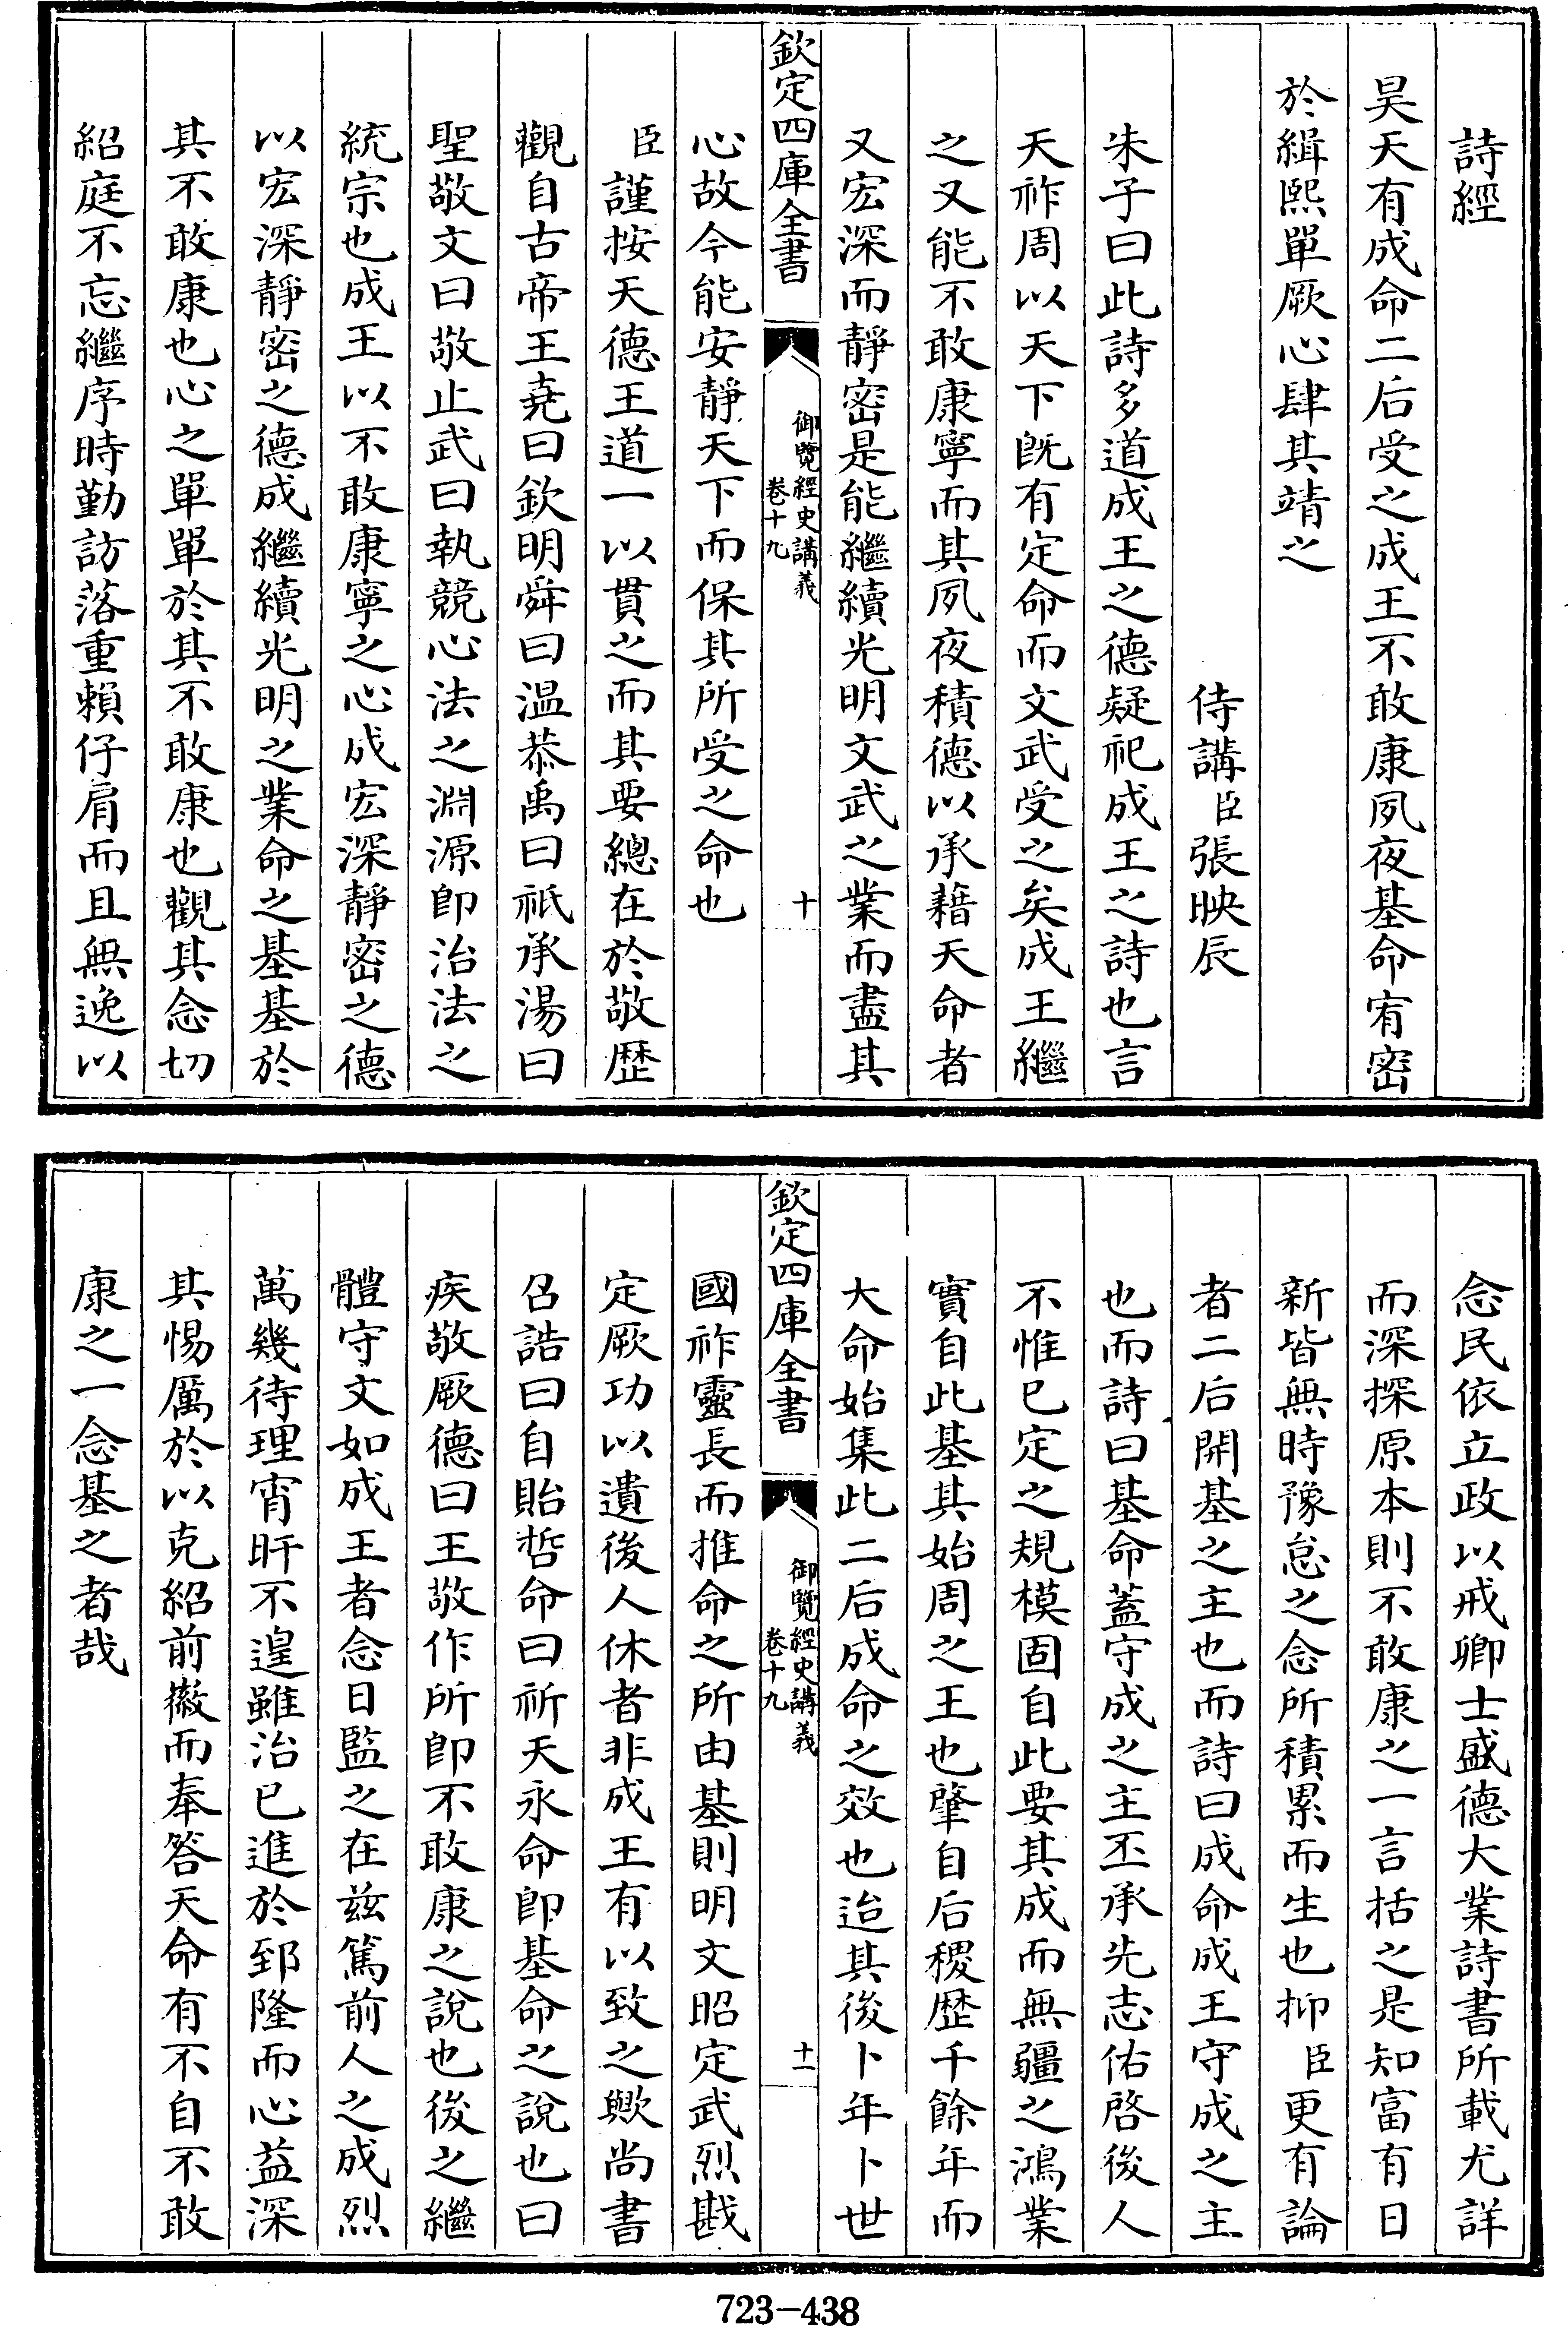 詩經
昊天有成命二后受之成王不敢康夙夜基命宥密
於緝熙單厥心肆其靖之
侍講臣張映辰
朱子曰此詩多道成王之德疑祀成王之詩也言
天祚周以天下既有定命而文武受之矣成王繼
之又能不敢康寧而其夙夜積德以承藉天命者
又宏深而靜密是能繼續光明文武之業而盡其
欽定四庫全書
御覽經史講義
卷十九
十
心故今能安靜天下而保其所受之命也
臣謹按天德王道一以貫之而其要總在於敬歴
觀自古帝王堯曰欽明舜曰温恭禹曰祇承湯曰
聖敬文曰敬止武曰執競心法之淵源卽治法之
統宗也成王以不敢康寧之心成宏深靜密之德
以宏深靜密之德成繼續光明之業命之基基於
其不敢康也心之單單於其不敢康也觀其念切
紹庭不忘繼序時勤訪落重賴仔肩而且無逸以
念民依立政以戒卿士盛德大業詩書所載尤詳
而深探原本則不敢康之一言括之是知富有日
新皆無時豫怠之念所積累而生也抑臣更有論
者二后開基之主也而詩曰成命成王守成之主
也而詩曰基命蓋守成之主丕承先志佑啓後人
不惟已定之規模固自此要其成而無疆之鴻業
實自此基其始周之王也肇自后稷歴千餘年而
大命始集此二后成命之效也迨其後卜年卜世
欽定四庫全書
御覽經史講義
卷十九
十一
國祚靈長而推命之所由基則明文昭定武烈戡
定厥功以遺後人休者非成王有以致之歟尚書
召誥曰自貽哲命曰祈天永命卽基命之說也曰
疾敬厥德曰王敬作所卽不敢康之說也後之繼
體守文如成王者念日監之在兹篤前人之成烈
萬幾待理宵旰不遑雖治已進於郅隆而心益深
其惕厲於以克紹前徽而奉答天命有不自不敢
康之一念基之者哉
723-438